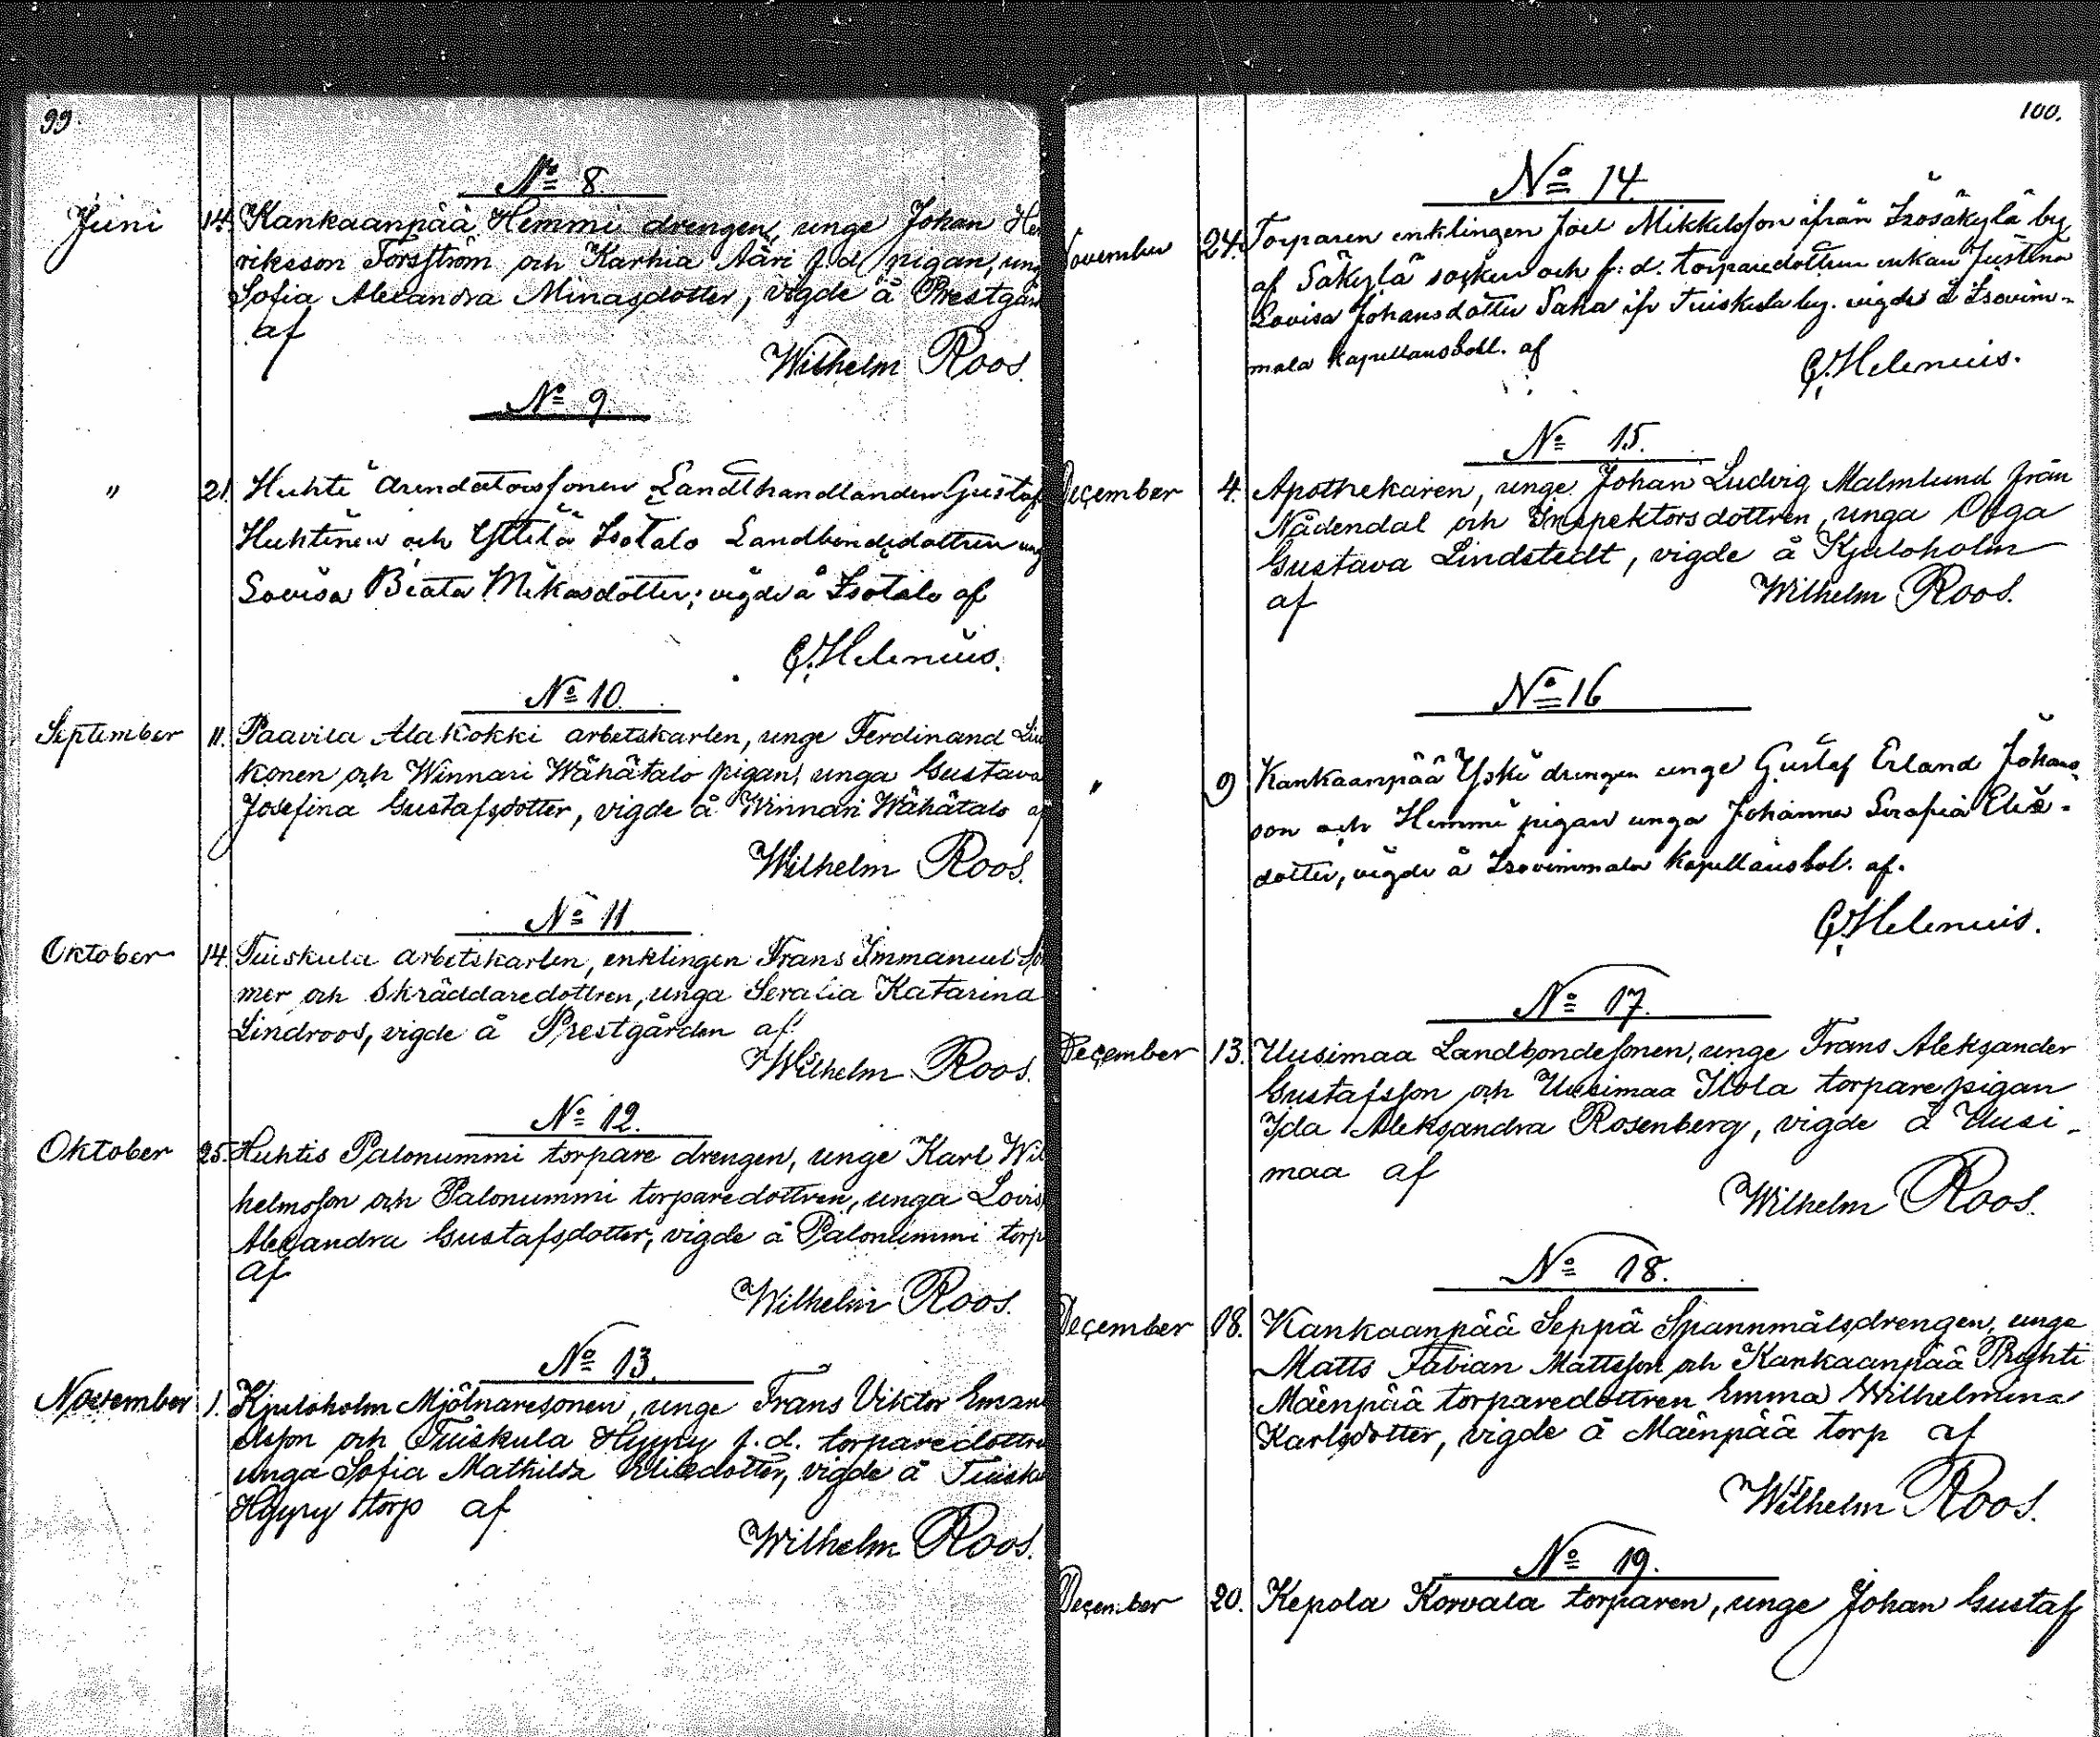 99.
No 8.
Juni 14. Kankaanpää Hemmi drengen, unge Johan He
riksson Forsström och Karhia Ääri f.d. pigan, ung
Sofia Alexandra Minasdotter, vigde å Prestgår
af
Wilhelm Roos.
No 9.
" 21. Huhti arendatorssonen Landthandlanden Gustaf
Huhtinen och Yttilä Isotalo Landbondedottren ung
Lovisa Beata Mikasdotter; vigde å Isotalo af
G. Helenius.
No 10.
September 11. Paavila Alakokki arbetskarlen, unge Ferdinand
konen och Winnari Wähätalo pigan, unga Gustava
Josefina Gustafsdotter, vigde å Winnari Wähätalo af
Wilhelm Roos.
No 11.
Oktober 14. Tuiskula arbetskarlen, enklingen Frans Immanuel
mer och Skräddaredottren, unga Seralia Katarina
Lindroos, vigde å Prestgården af
Wilhelm Roos.
No 12.
Oktober 25. Huhtis Palonummi torpare drengen, unge Karl Wil
helmsson och Palonummi torparedottren, unga Lovis
Alexandra Gustafsdotter, vigde å Palonummi torp
af
Wilhelm Roos.
No 13.
November 1. Kjuloholm Mjölnaresonen, unge Frans Viktor Emanu
elsson och Tuiskula Hyyry f.d. torparedottre
unga Sofia Mathilda Eliedotter, vigde å Tuisku
Hyyry torp af
Wilhelm Roos.
100.
No 14.
November 24. Torparen enklingen Joel Mikkelsson ifrån Isosäkylä by
af Säkylä socken och f.d. torparedottren enkan Justina
Lovisa Johansdotter Saha ifr Tuiskula by. vigde å Isovim-
mala Kapellansbol. af
G. Helenius.
No 15.
December 4. Apothekaren, unge Johan Ludvig Malmlund från
Nådendal och Inspektorsdottren, unga Olga
Gustava Lindstedt, vigde å Kjuloholm
af Wilhelm Roos.
No 16
" 9 Kankaanpää Yski drengen unge Gustaf Erland Johans-
son och Hemmi pigan unga Johanna Serafia Elis-
dotter, vigde å Isovimmala Kapellansbol. af.
G. Helenius.
No 17.
December 13. Uusimaa Landbondesonen, unge Frans Aleksander
Gustafsson och Uusimaa Ilola torparepigan
Ida Aleksandra Rosenberg, vigde å Uusi-
maa af
Wilhelm Roos.
No 18.
December 18. Kankaanpää Seppä Spannmålsdrengen, unge
Matts Fabian Mattsson och Kankaanpää Pryhti
Mäenpää torparedottren Emma Wilhelmina
Karlsdotter, vigde å Mäenpää torp af
Wilhelm Roos.
No 19.
December 20. Kepola Korvala torparen, unge Johan Gustaf